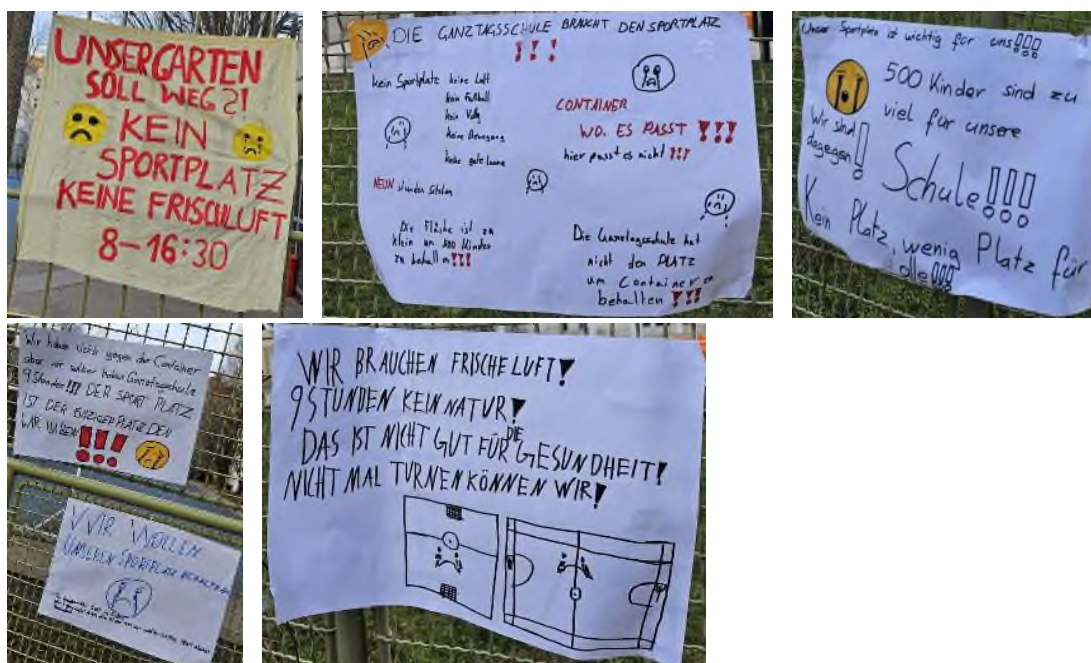 UNSER GARTEN
SOLL WEG?!
KEIN
SPORTPLATZ
KEINE FRISCHLUFT
8-16:30
DIE GANZTAGSSCHULE BRAUCHT DEN SPORTPLATZ
!!!
kein Sportplatz keine Luft
kein Fußball
kein Volly
keine Bewegung
keine gute Laune
CONTAINER
WO. ES PASST !!!
hier passt es nicht !!!
NEUN stunden sitzen
Die Fläche ist zu
klein um 500 Kinder
zu behalten!!!
Die Ganztagsschule hat
nicht den PLATZ
um Container zu
behalten !!!
Unser Sportplatz ist wichtig für uns!!!
500 Kinder sind zu
viel für unsere
Schule!!!
Wir sind
dagegen!
Kein Platz, wenig Platz für
alle!!!
Wir haben nichts gegen der Container
aber wir haben Ganztagschule
9 Stunden!!! DER SPORT PLATZ
IST DER EINZIGE PLATZ DEN
WIR HABEN !!!
WIR WOLLEN
UNSEREN SPORTPLATZ BEHALTEN
WIR BRAUCHEN FRISCHE LUFT!
9 STUNDEN KEIN NATUR!
DAS IST NICHT GUT FÜR DIE GESUNDHEIT!
NICHT MAL TURNEN KÖNNEN WIR!